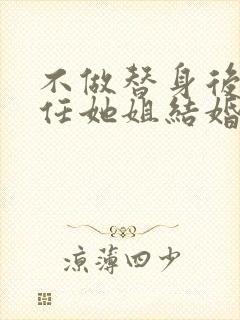 不做替身後
任她姐結婚
涼薄四少